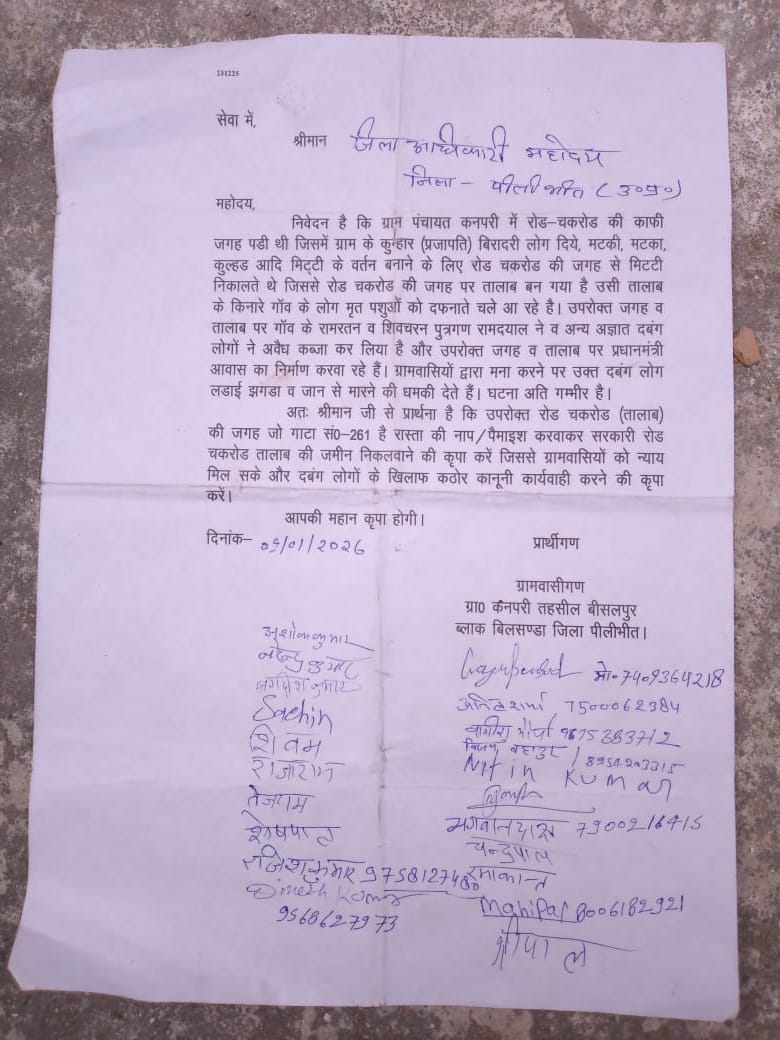 231225
सेवा में,
श्रीमान जिला अधिकारी महोदय
जिला - पीलीभीत (उ०प्र०)
महोदय,
निवेदन है कि ग्राम पंचायत कनपरी में रोड-चकरोड की काफी
जगह पडी थी जिसमें ग्राम के कुम्हार (प्रजापति) बिरादरी लोग दिये, मटकी, मटका,
कुल्हड आदि मिट्टी के वर्तन बनाने के लिए रोड चकरोड की जगह से मिटटी
निकालते थे जिससे रोड चकरोड की जगह पर तालाब बन गया है उसी तालाब
के किनारे गॉव के लोग मृत पशुओं को दफनाते चले आ रहे है। उपरोक्त जगह व
तालाब पर गॉव के रामरतन व शिवचरन पुत्रगण रामदयाल ने व अन्य अज्ञात दबंग
लोगों ने अवैध कब्जा कर लिया है और उपरोक्त जगह व तालाब पर प्रधानमंत्री
आवास का निर्माण करवा रहे हैं। ग्रामवासियों द्वारा मना करने पर उक्त दबंग लोग
लडाई झगडा व जान से मारने की धमकी देते हैं। घटना अति गम्भीर है।
अतः श्रीमान जी से प्रार्थना है कि उपरोक्त रोड चकरोड (तालाब)
की जगह जो गाटा सं0-261 है रास्ता की नाप/पैमाइश करवाकर सरकारी रोड
चकरोड तालाब की जमीन निकलवाने की कृपा करें जिससे ग्रामवासियों को न्याय
मिल सके और दबंग लोगों के खिलाफ कठोर कानूनी कार्यवाही करने की कृपा
करें।
आपकी महान कृपा होगी।
दिनांक- 05/01/2026
प्रार्थीगण
ग्रामवासीगण
ग्रा0 कनपरी तहसील बीसलपुर
ब्लाक बिलसण्डा जिला पीलीभीत।
अशोक कुमार
नरेन्द्र कुमार
जगदीश कुमार
Sachin
शिवम
राजाराम
तेजराम
शेषपाल
9758127480
Dinesh Kumar
9568627973
मो०-7409364218
शर्मा 7500062384
9675383712
बहादुर
Nitin Kumar
भगवानदास 7900216415
चन्द्रपाल
रमाकान्त
Mahipal 8006182921
श्रीपाल